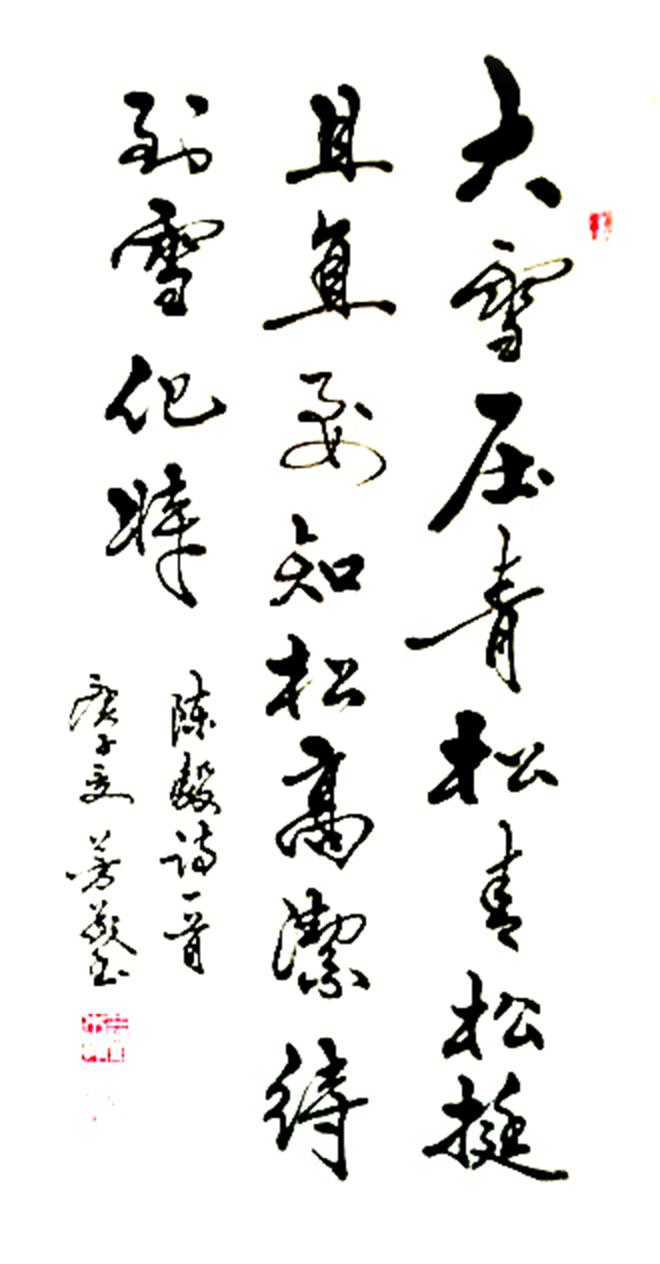 大雪压青松青松挺
且直要知松高潔待
到雪化時
陈毅诗一首
庚子夏